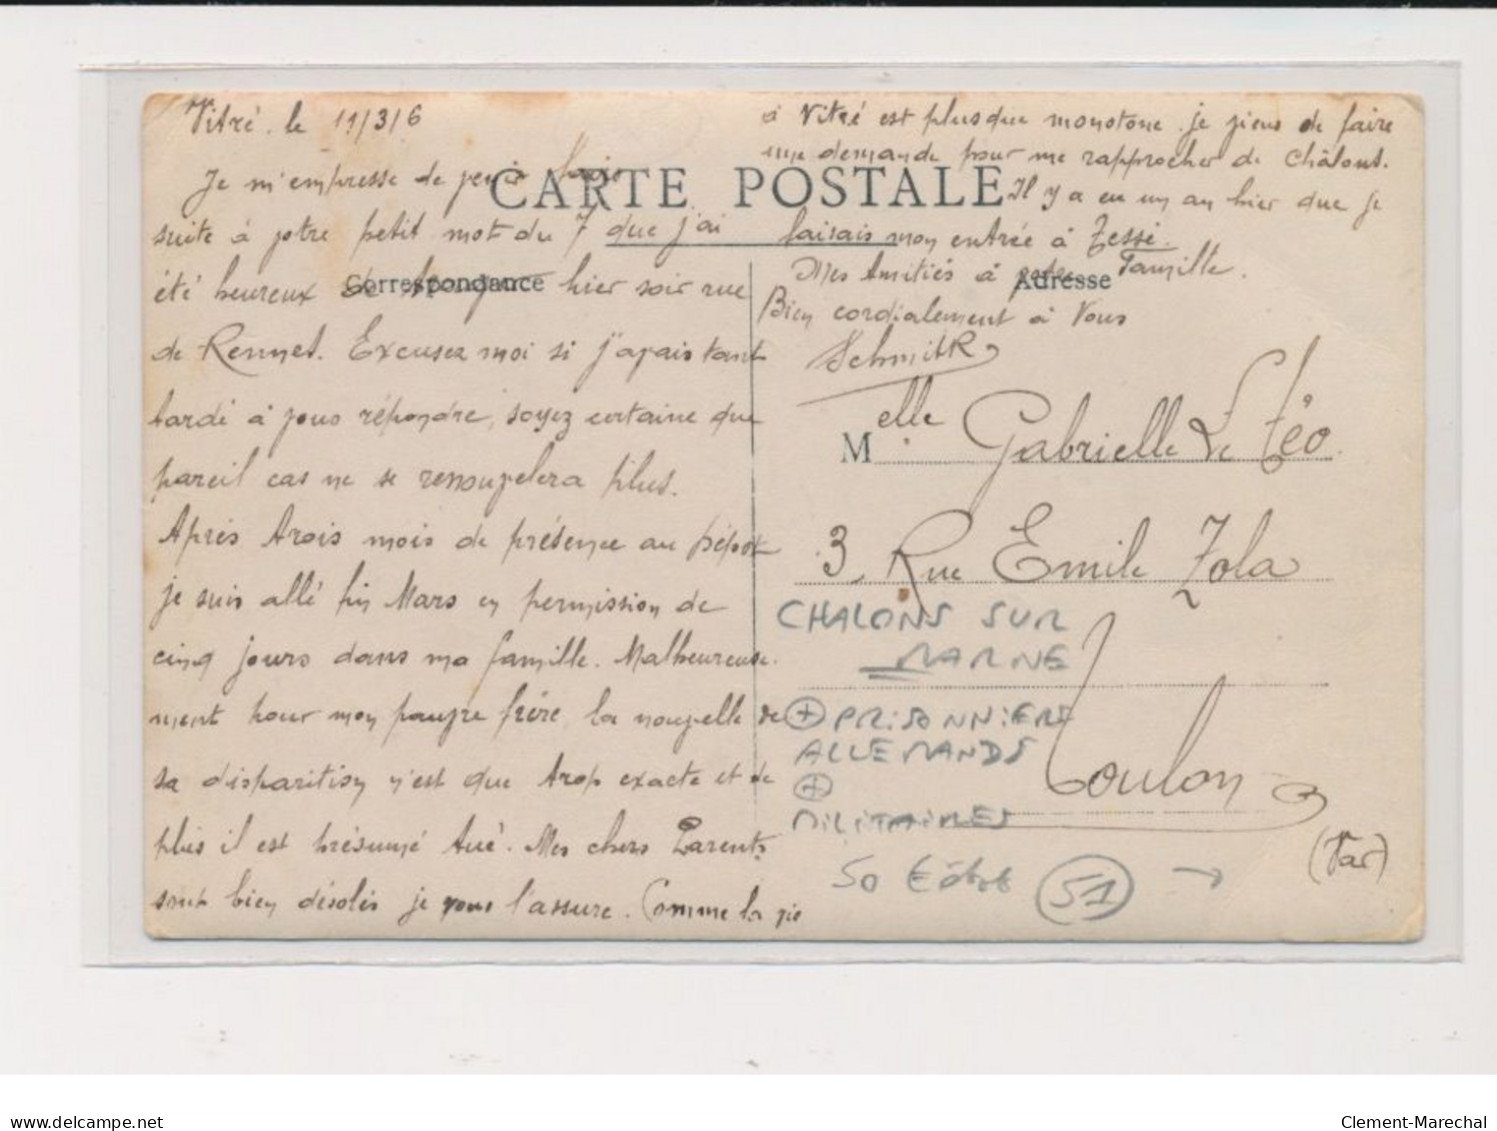 Vitré. le 11/3/6
Je m'empresse de venir faire
suite à votre petit mot du 7 que j'ai
été heureux de hier soir rue
de Rennes. Excusez moi si j'avais tant
tardé à vous répondre, soyez certaine que
pareil cas ne se renouvelera plus.
Après trois mois de présence au Dépôt
je suis allé fin Mars en permission de
cinq jours dans ma famille. Malheureuse-
ment pour mon pauvre frère, la nouvelle de
sa disparition n'est que trop exacte et de
plus il est présumé tué. Mes chers Parents
sont bien désolés je vous l'assure. Comme la vie
à Vitré est plus que monotone. je viens de faire
une demande pour me rapprocher de Châlons.
Il y a eu un an hier que je
faisais mon entrée à Tessé.
Mes Amitiés à votre Famille.
Bien cordialement à Vous
Schmitk
CARTE POSTALE
Correspondance
Adresse
Melle Gabrielle Le Téo
3, Rue Emile Zola
Toulon
(Var)
CHALONS SUR
MARNE
+ PRISONNIERE
ALLEMANDS
+
MILITAIRES
50 51 →
delcampe.net
Clement-Marechal